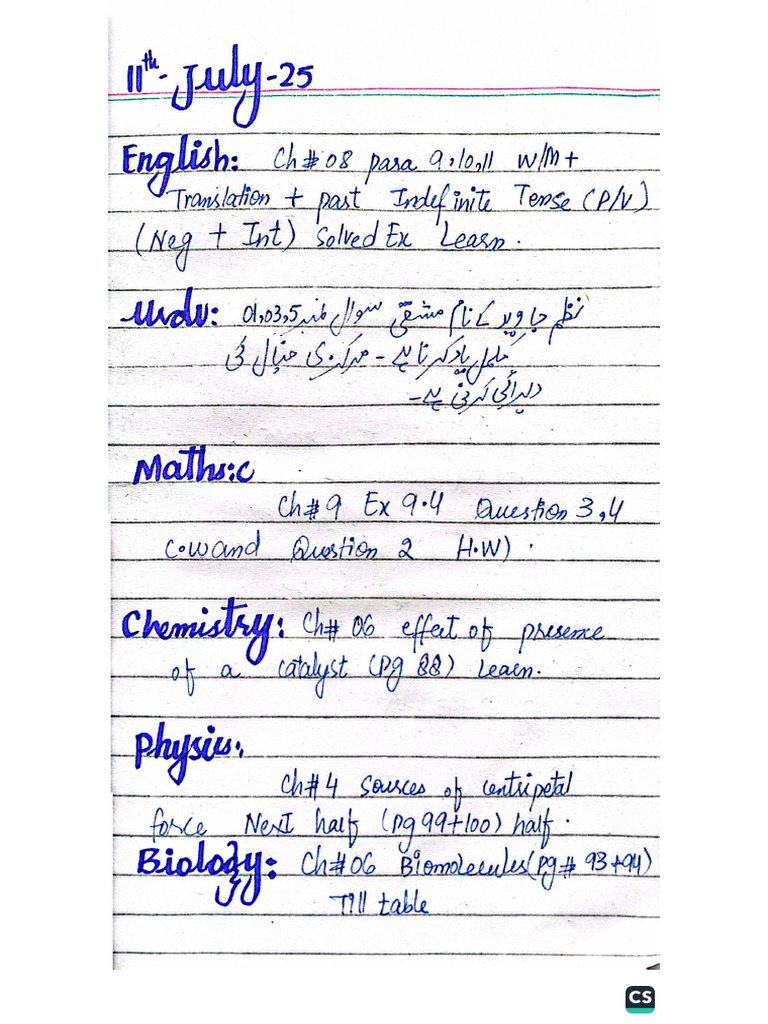 11th - July - 25
English: Ch# 08 para 9,10,11 w/M +
Translation + past Indefinite Tense (P/V)
(Neg + Int) Solved Ex Learn.
Urdu: نظم جاوید کے نام مشقی سوال نمبر 01,03,5
مکمل یاد کرنا ہے - مرکزی خیال کی
دہرائی کرنی ہے-
Maths:c
Ch#9 Ex 9.4 Question 3,4
C.W and Question 2 H.W) .
Chemistry: Ch# 06 effect of presence
of a catalyst (Pg 88) Learn.
Physics:
Ch# 4 sources of centripetal
force Next half (pg 99+100) half.
Biology: Ch#06 Biomolecules (Pg# 93+94)
Till table
CS